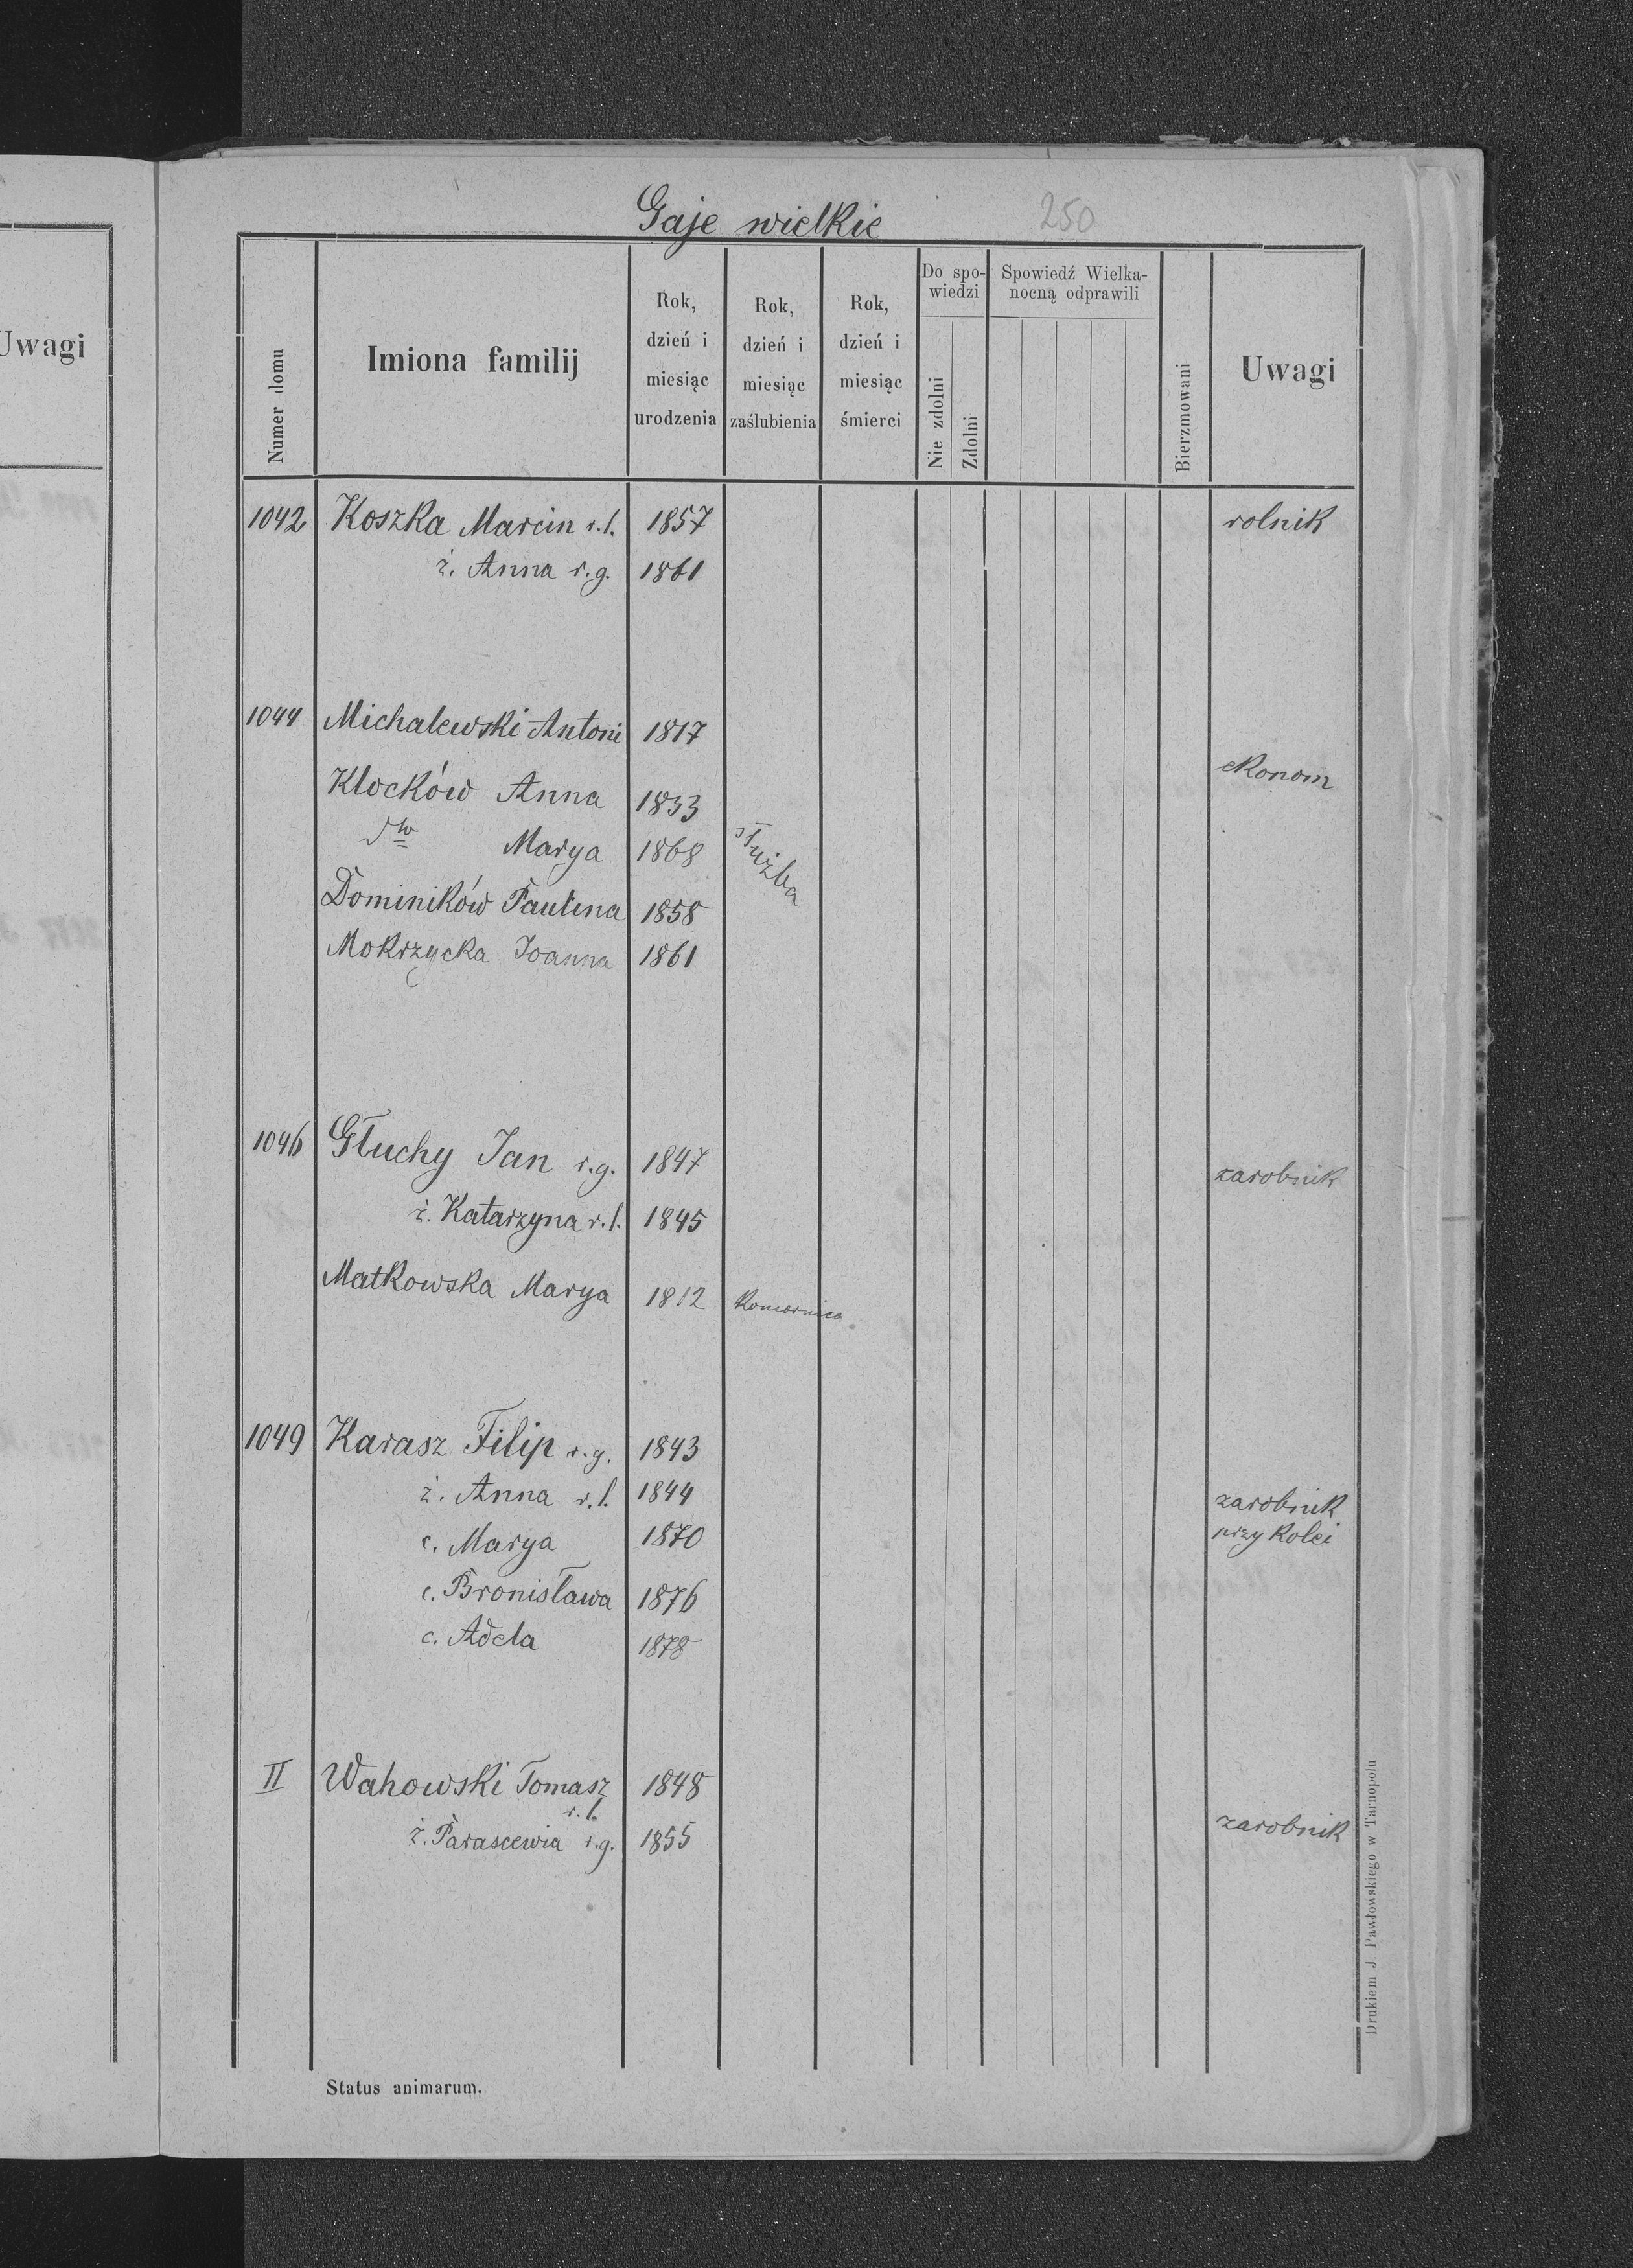 Uwagi
Gaje wielkie 250
Numer domu
Imiona familij
Rok, dzień i miesiąc urodzenia
Rok, dzień i miesiąc zaślubienia
Rok, dzień i miesiąc śmierci
Do spo-
wiedzi
Nie zdolni
Zdolni
Spowiedź Wielka-
nocną odprawili
Bierzmowani
Uwagi
1042 Koszka Marcin r.l. 1857 rolnik
ż. Anna r.g. 1861
1044 Michalewski Antoni 1817
ekonom
Klocków Anna 1833
Marya 1868 służba
Dominików Paulina 1858
Mokrzycka Joanna 1861
1046 Głuchy Jan r.g. 1847 zarobnik
ż. Katarzyna r.l. 1845
Matkowska Marya 1812 Komornica
1049 Karasz Filip r.g. 1843
ż. Anna r.l. 1844 zarobnik
c. Marya 1870 przy Kolei
c. Bronisława 1876
c. Adela 1878
II Wahowski Tomasz 1848
r.l.
ż. Parascewia r.g. 1855 zarobnik
Status animarum.
Drukiem J. Pawłowskiego w Tarnopolu